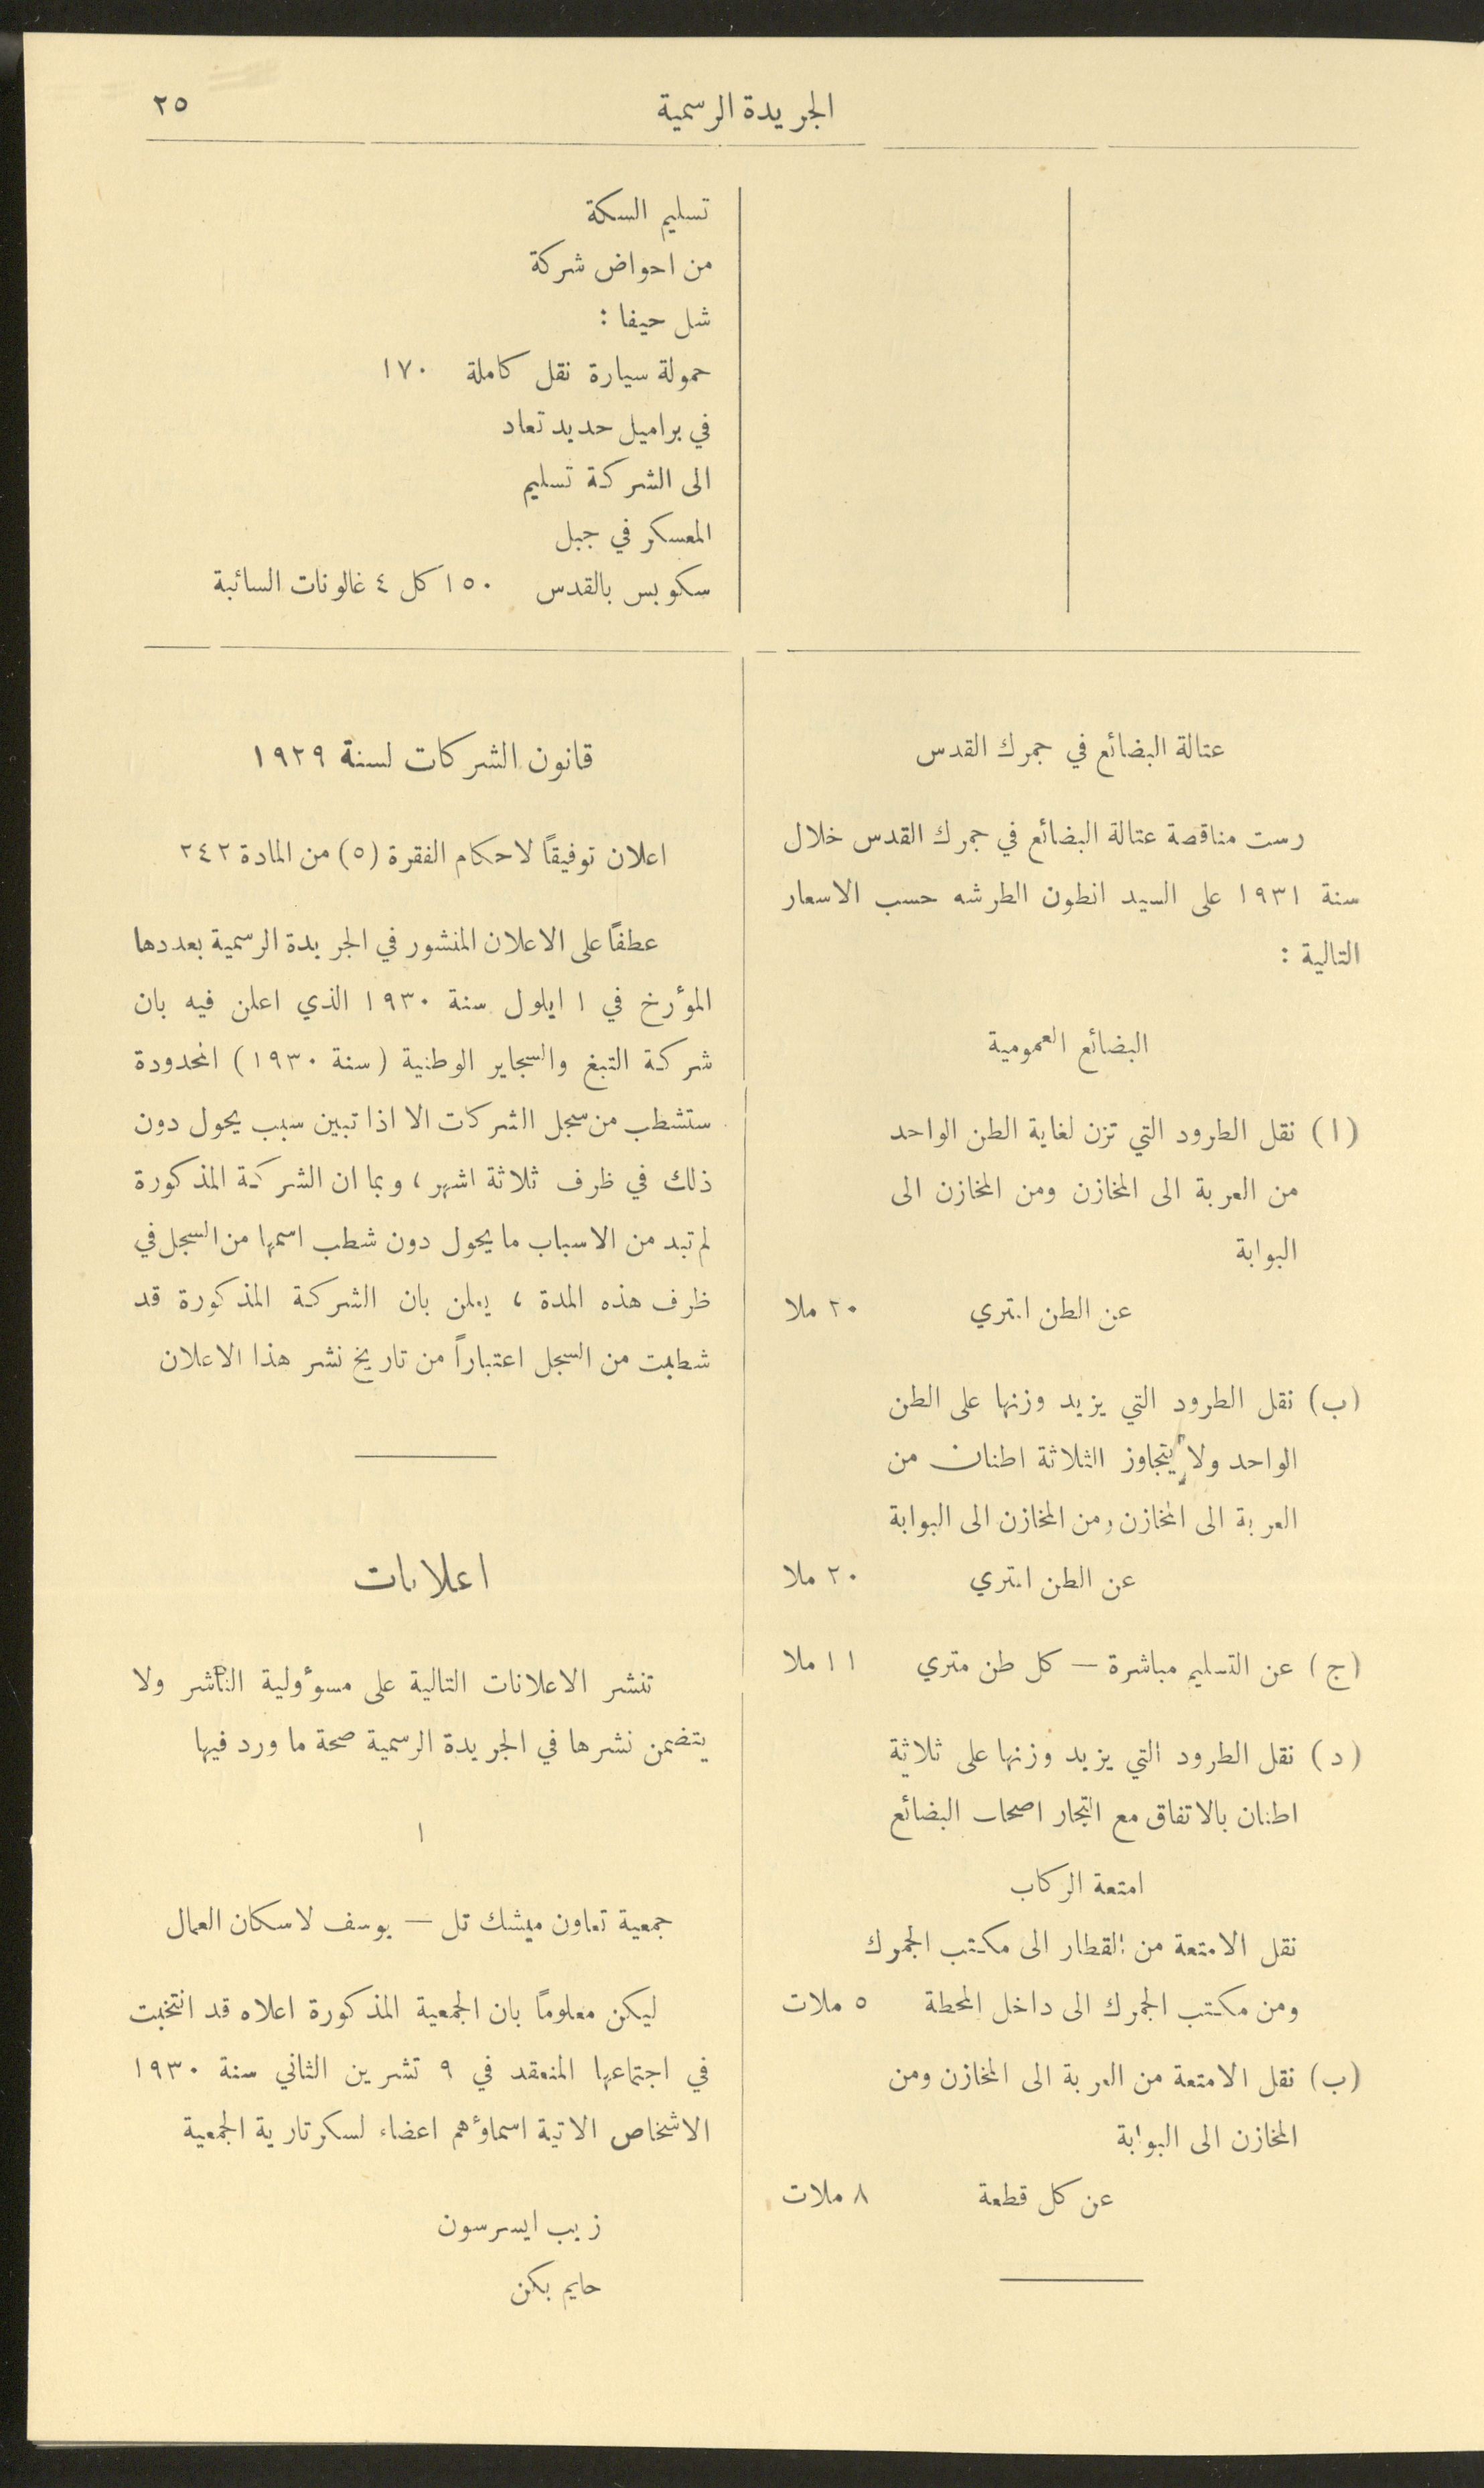 الجريدة الرسمية
٢٥
تسليم السكة
من احواض شركة
شل حيفا :
حمولة سيارة نقل كاملة ١٧٠
في براميل حديد تعاد
الى الشركة تسليم
المعسكر في جبل
سكوبس بالقدس ١٥٠ كل ٤ غالونات السائبة
عتالة البضائع في جمرك القدس
رست مناقصة عتالة البضائع في جمرك القدس خلال
سنة ١٩٣١ على السيد انطون الطرشه حسب الاسعار
التالية :
البضائع العمومية
(ا) نقل الطرود التي تزن لغاية الطن الواحد
من العربة الى المخازن ومن المخازن الى
البوابة
عن الطن المتري ٢٠ ملا
(ب) نقل الطرود التي يزيد وزنها على الطن
الواحد ولا يتجاوز الثلاثة اطنان من
العربة الى المخازن ومن المخازن الى البوابة
عن الطن المتري ٢٠ ملا
(ج) عن التسليم مباشرة — كل طن متري ١١ ملا
(د) نقل الطرود التي يزيد وزنها على ثلاثة
اطنان بالاتفاق مع التجار اصحاب البضائع
امتعة الركاب
نقل الامتعة من القطار الى مكتب الجمرك
ومن مكتب الجمرك الى داخل المحطة ٥ ملات
(ب) نقل الامتعة من العربة الى المخازن ومن
المخازن الى البوابة
عن كل قطعة ٨ ملات
قانون الشركات لسنة ١٩٢٩
اعلان توفيقاً لاحكام الفقرة (٥) من المادة ٢٤٢
عطفاً على الاعلان المنشور في الجريدة الرسمية بعددها
المؤرخ في ١ ايلول سنة ١٩٣٠ الذي اعلن فيه بان
شركة التبغ والسجاير الوطنية (سنة ١٩٣٠) المحدودة
ستشطب من سجل الشركات الا اذا تبين سبب يحول دون
ذلك في ظرف ثلاثة اشهر ، وبما ان الشركة المذكورة
لم تبد من الاسباب ما يحول دون شطب اسمها من السجل في
ظرف هذه المدة ، يعلن بان الشركة المذكورة قد
شطبت من السجل اعتباراً من تاريخ نشر هذا الاعلان
اعلانات
تنشر الاعلانات التالية على مسوؤلية الناشر ولا
يتضمن نشرها في الجريدة الرسمية صحة ما ورد فيها
١
جمعية تعاون ميشك تل — يوسف لاسكان العمال
ليكن معلوماً بان الجمعية المذكورة اعلاه قد انتخبت
في اجتماعها المنعقد في ٩ تشرين الثاني سنة ١٩٣٠
الاشخاص الاتية اسماؤهم اعضاء لسكرتارية الجمعية
زيب
حايم بكن